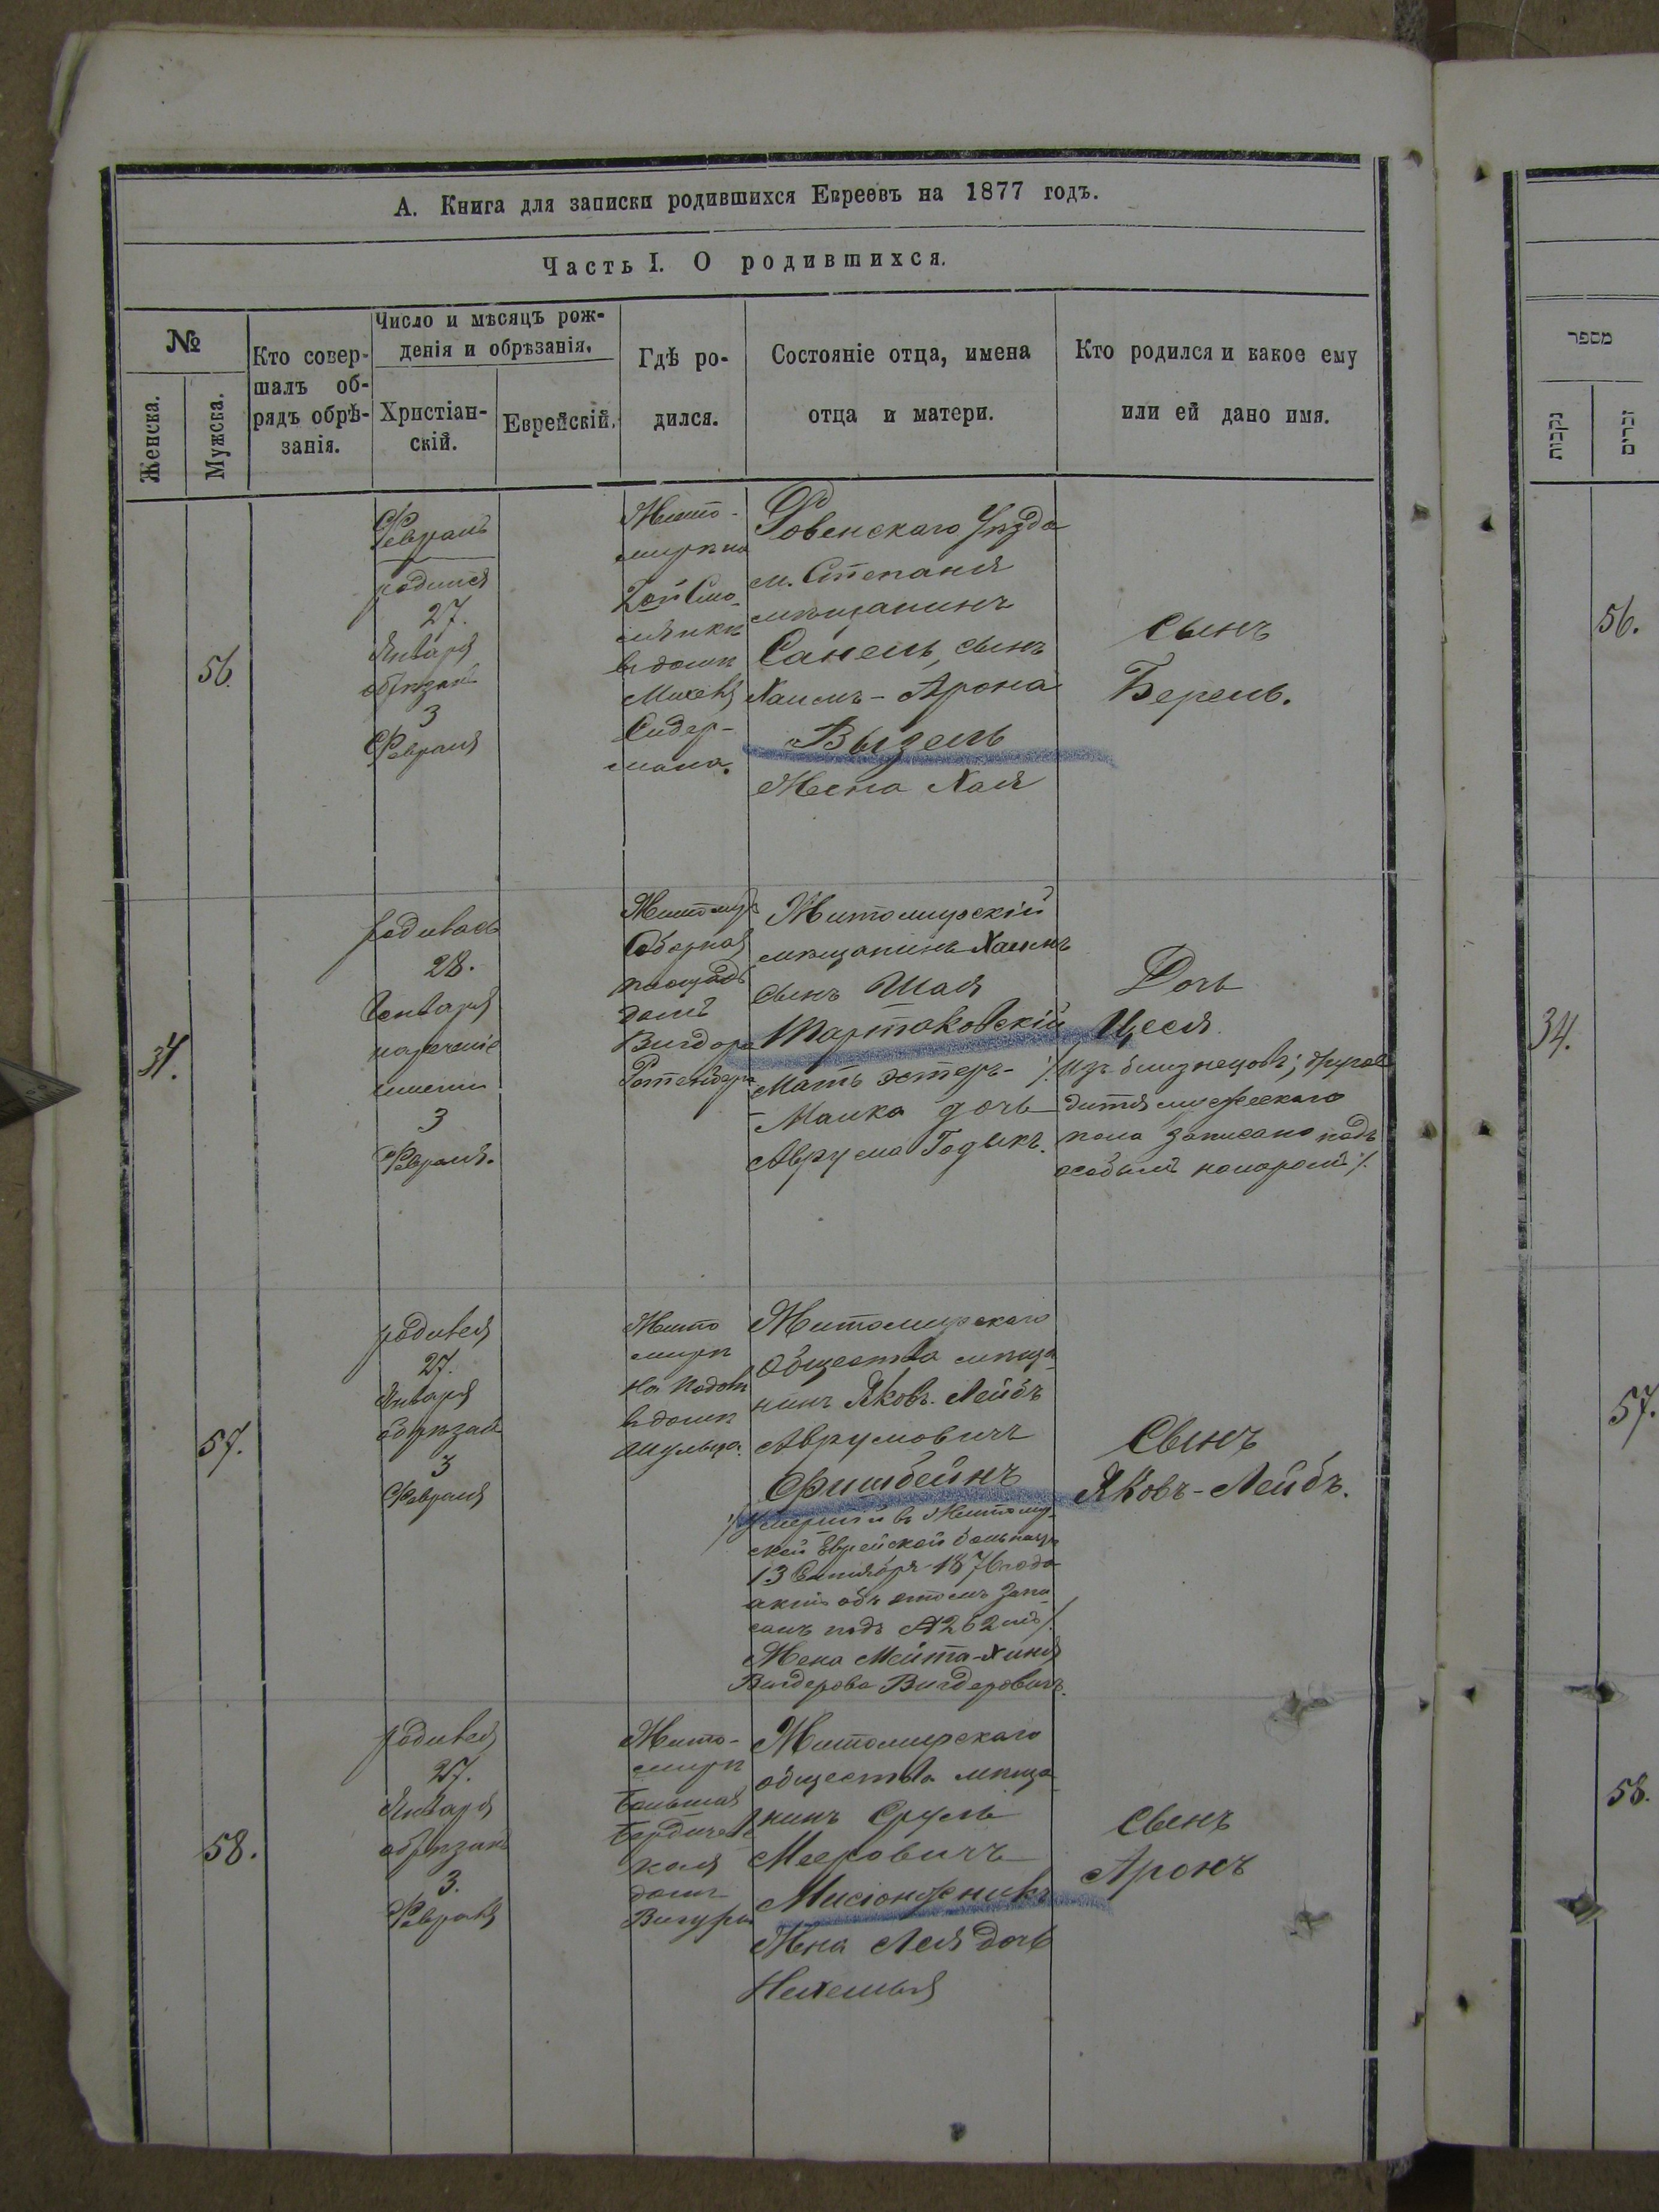 А. Книга для записки родившихся Евреевъ на 1877 годъ.
Часть I. О родившихся.
№
Женска.
Мужска.
Кто совер-
шалъ об-
рядъ обрѣ-
занія.
Число и мѣсяцъ рож-
денія и обрѣзанія.
Христіан-
скій.
Еврейскій.
Гдѣ ро-
дился.
Состояніе отца, имена
отца и матери.
Кто родился и какое ему
или ей дано имя.
56.
Февраль
родился
27.
Января
обрѣзанъ
3
Февраля
Жито-
мирѣ на
2ой
в домѣ
Сидер-
мана.
Ровенскаго Уѣзда
м. Степаня
мѣщанинъ
Санель, сынъ
Хаимъ-Арона
Выдель
Жена Хая
Сынъ
Берель.
34.
родилась
28.
Января
нареченіе
имени
3
Февраля.
Житомиръ
Соборная
площадь
домъ
Вигдора
Житомирскій
мѣщанинъ Хаимъ
сынъ Шая
Тартаковскій
Мать Эстеръ-
-Малка дочь
Аврума Годыкъ.
Дочь
Цеся.
/. Изъ близнецовъ; другое
дитя мужескаго
пола записано подъ
особымъ номеромъ /.
57.
родився
27.
Января
обрѣзанъ
3
Февраля
Жито
мирѣ
На Подолѣ
в домѣ
Шульца.
Житомирскаго
общества мѣща
нинъ Яковъ-Лейбъ
Аврумовичъ
Фишбейнъ
/. Умершій въ Житомир-
ской Еврейской больницѣ
13 Сентября 1876 года
актъ объ этомъ запи
санъ подъ № 262 мъ /.
Жена Мейта-Хиня
Вигдерова Вигдеровичъ.
Сынъ
Яковъ-Лейбъ.
58.
родився
27.
Января
обрѣзанъ
3.
Февраля
Жито-
мирѣ
Большая
Бердичевс
кая
домъ
Вигуры
Житомирскаго
общества мѣща
нинъ Сруль
Мееровичъ
Жена Лея дочь
Нехемья
Сынъ
Аронъ
מספר
נקבות
זכרים
56.
34.
57.
58.